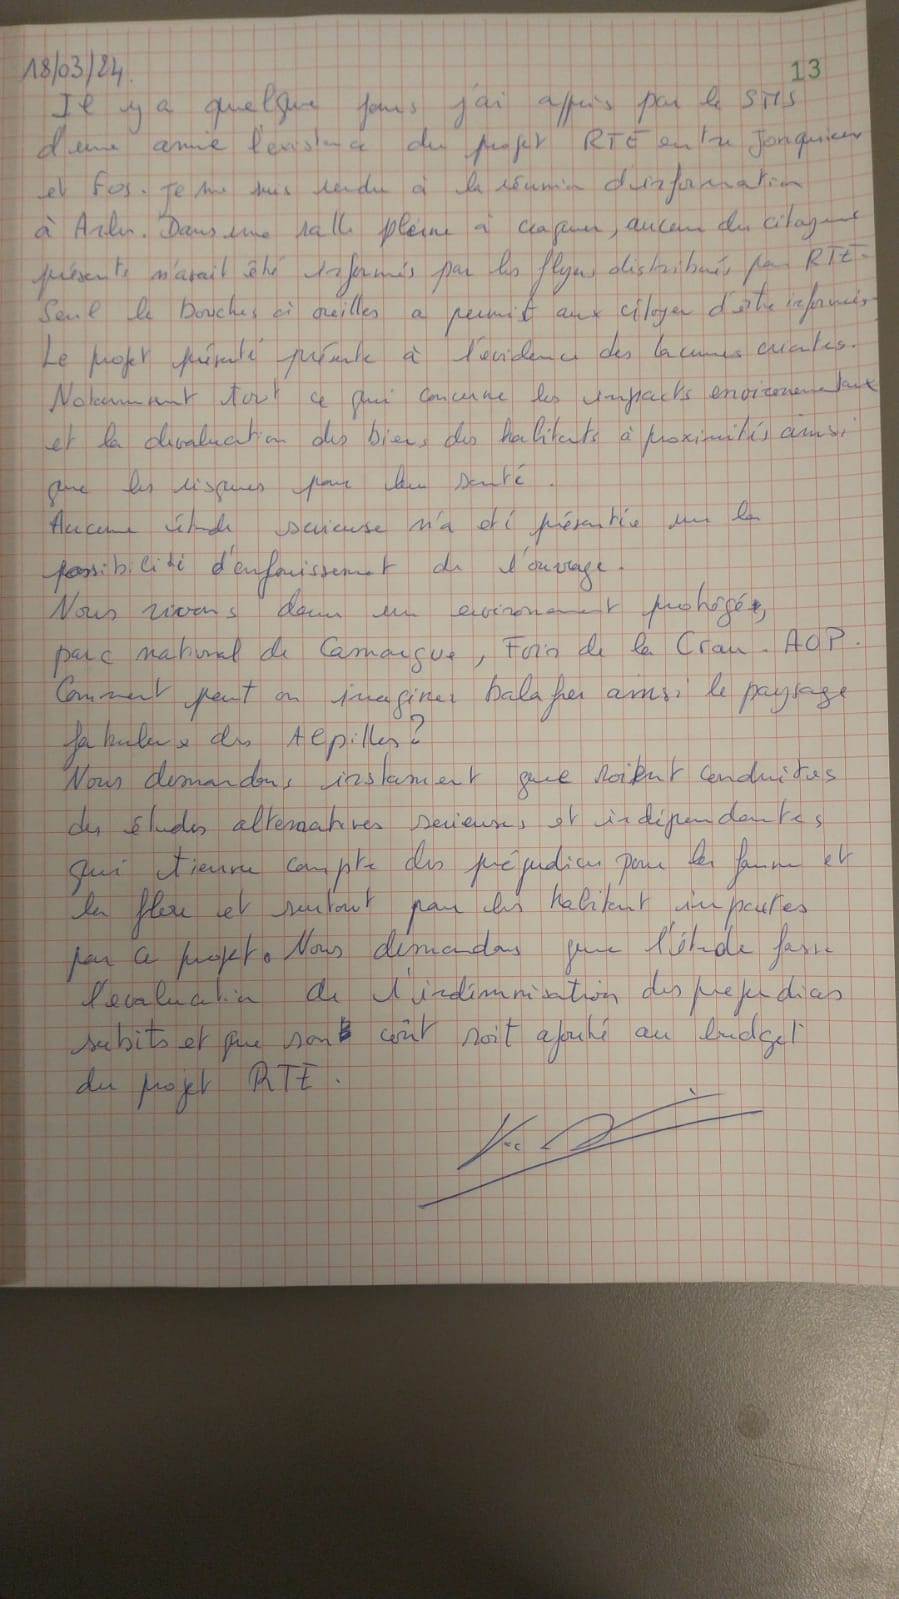 18/03/24
13
Il y a quelque jours j'ai appris par le SMS
d'une amie l'existence du projet RTE entre Jonquieres
et Fos. Je me suis rendu à la réunion d'information
à Arles. Dans une salle pleine à craquer, aucun des citoyens
présents n'avait été informés par les flyers distribués par RTE.
Seul le bouches à oreilles a permit aux citoyen d'être informés.
Le projet présenté présente à l'évidence des lacunes criantes.
Notamment tout ce qui concerne les impacts environementaux
et la dévaluation des biens des habitants à proximités ainsi
que les risques pour leur santé.
Aucune étude serieuse n'a été présentée sur la
possibilité d'enfouissement de l'ouvrage.
Nous vivons dans un environement protégé,
parc national de Camargue, Foin de la Crau. AOP.
Comment peut on imaginer balafrer ainsi le paysage
fabuleux des Alpilles?
Nous demandons instament que soient conduites
des études alternatives serieuses et indépendantes
qui tienne compte des préjudices pour la faune et
la flore et surtout pour les habitant impactés
par ce projet. Nous demandons que l'étude fasse
l'evaluation de l'indemnisation des prejudices
subits et que son coût soit ajouté au budget
du projet RTE.